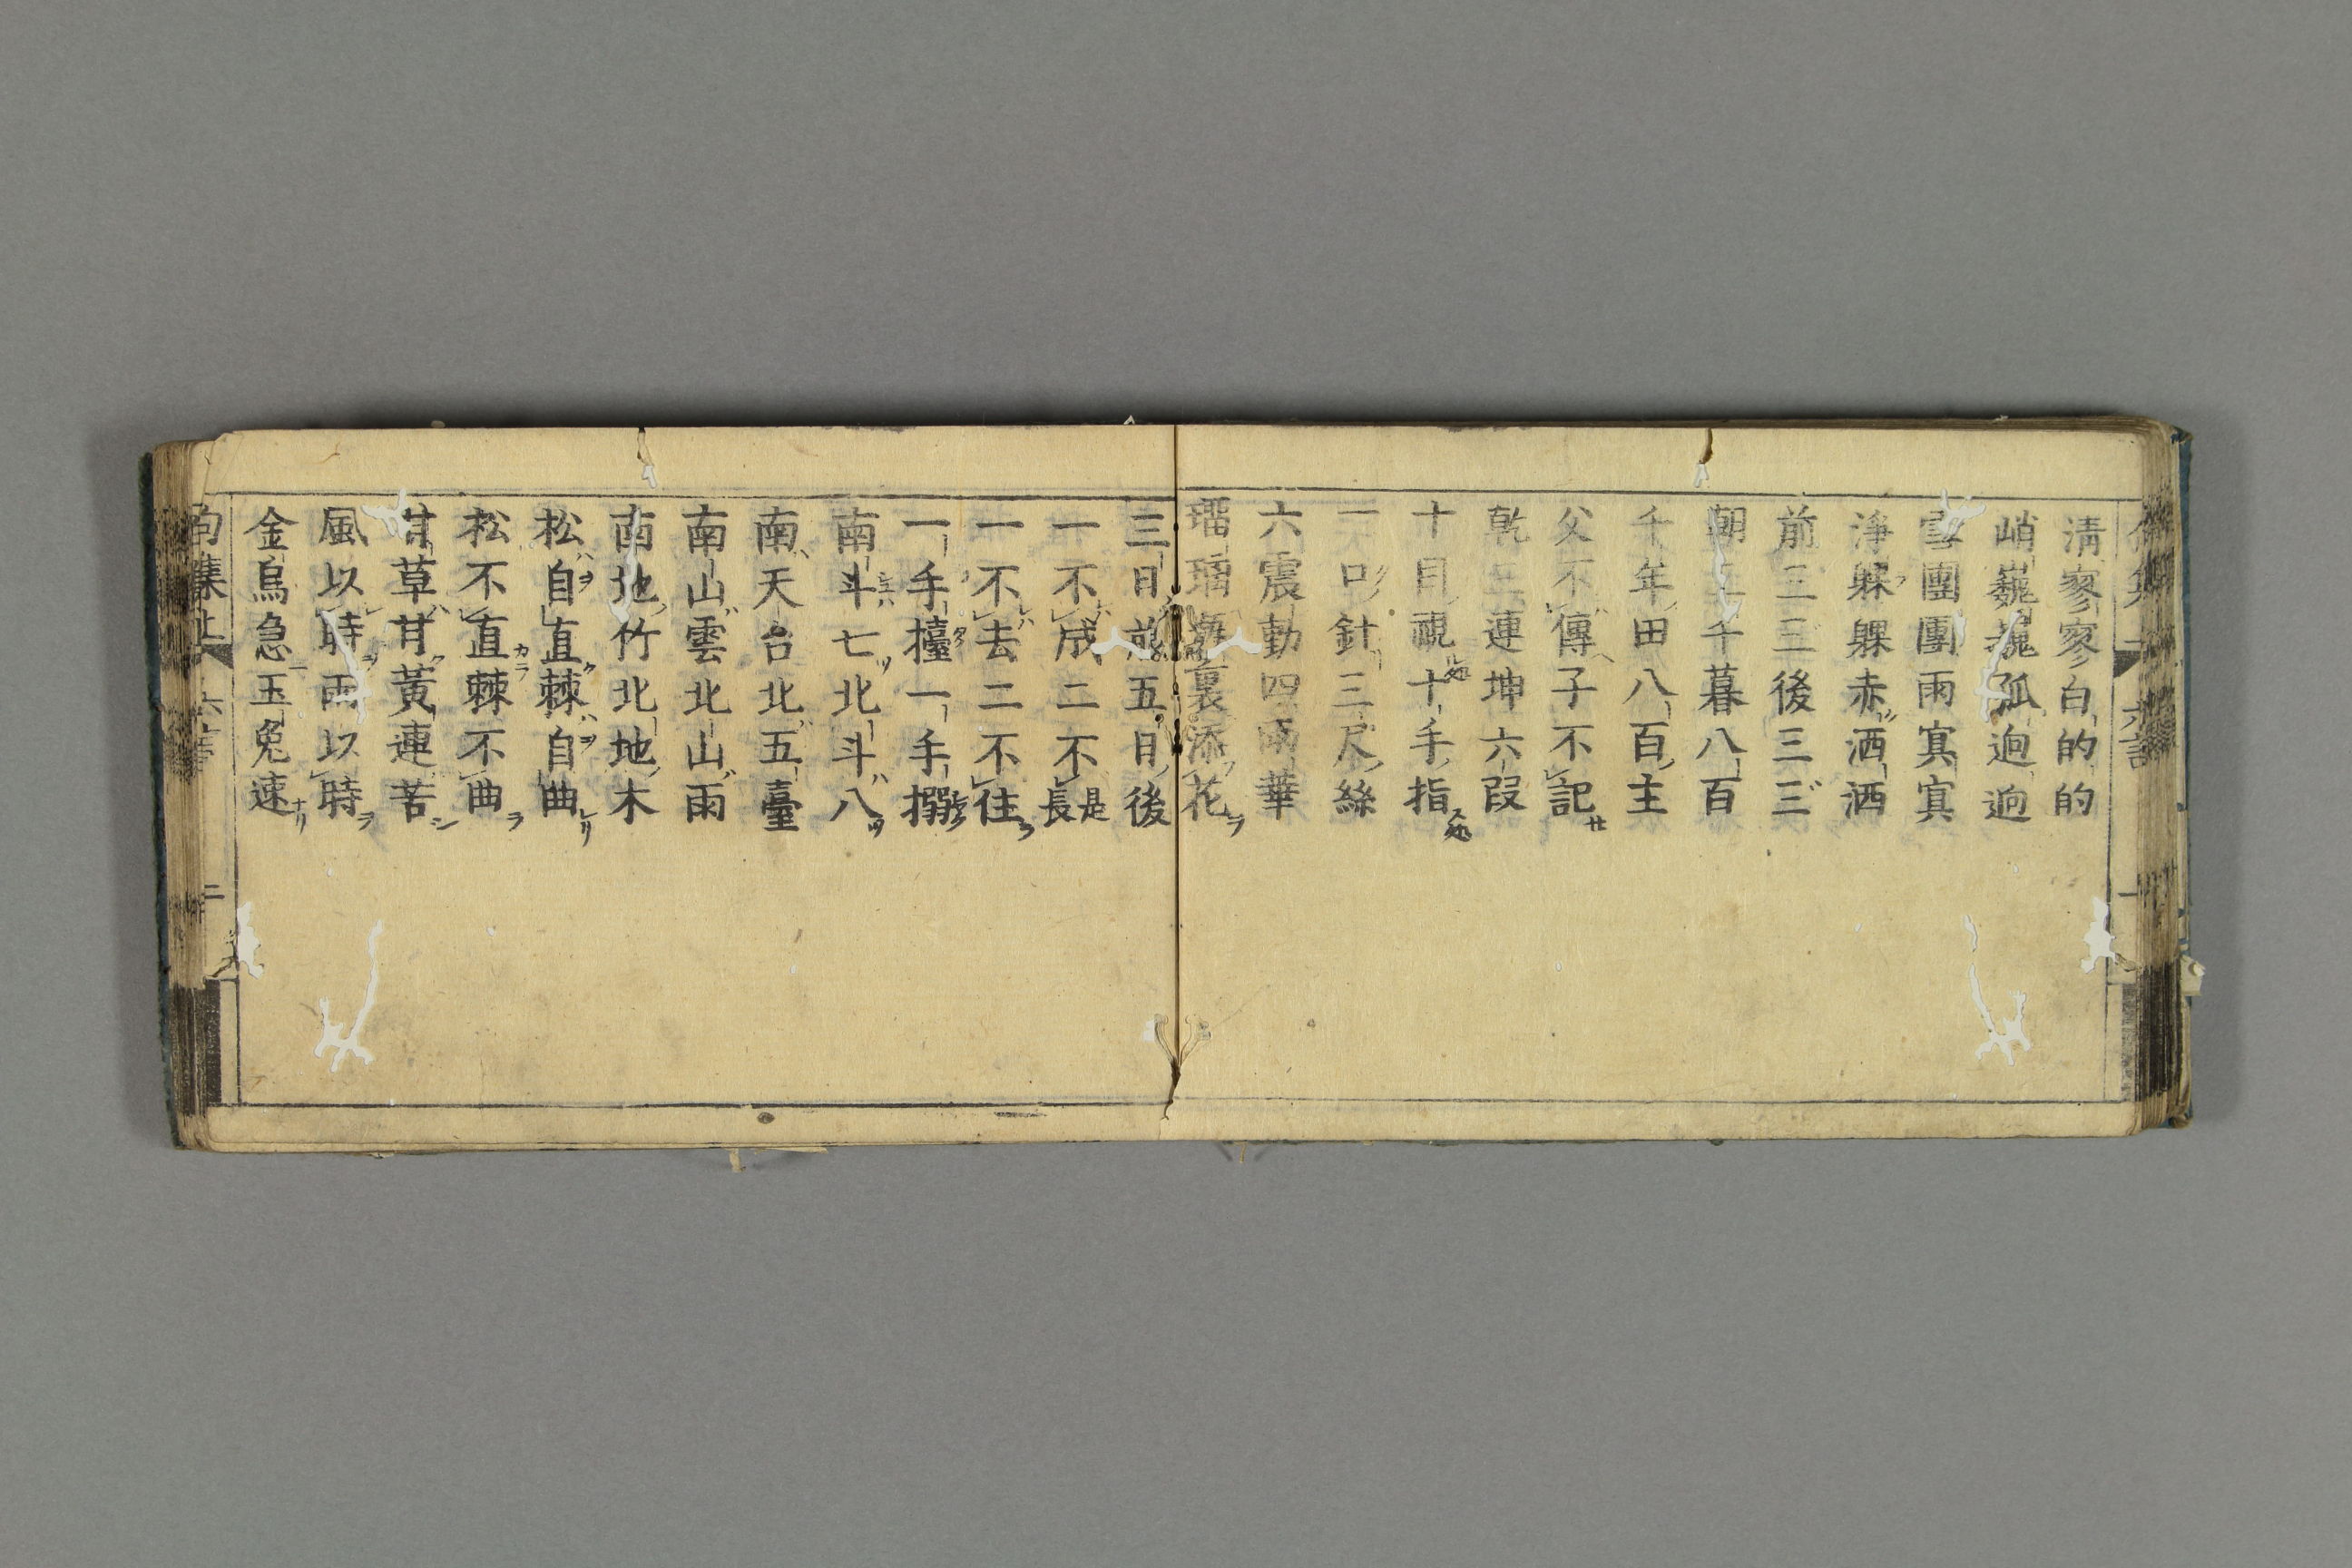 清寥寥白的的
峭巍巍孤逈逈
雪團團雨寘寘
淨躶躶赤洒洒
前三三後三三
朝三千暮八百
千年田八百主
父不傳子不記
乾三連坤六段
十目視十手指
一口針三尺絲
六震動四雨華
瑠璃裏添花
三日前五日後
一不成二不是長
一不去二不住
一手擡一手搦
南斗七北斗八
南天台北五臺
南山雲北山雨
南地竹北地木
松自直棘自曲
松不直棘不曲
甘草甘黃連苦
風以時雨以時
金烏急玉兔速
句集上 六言 二